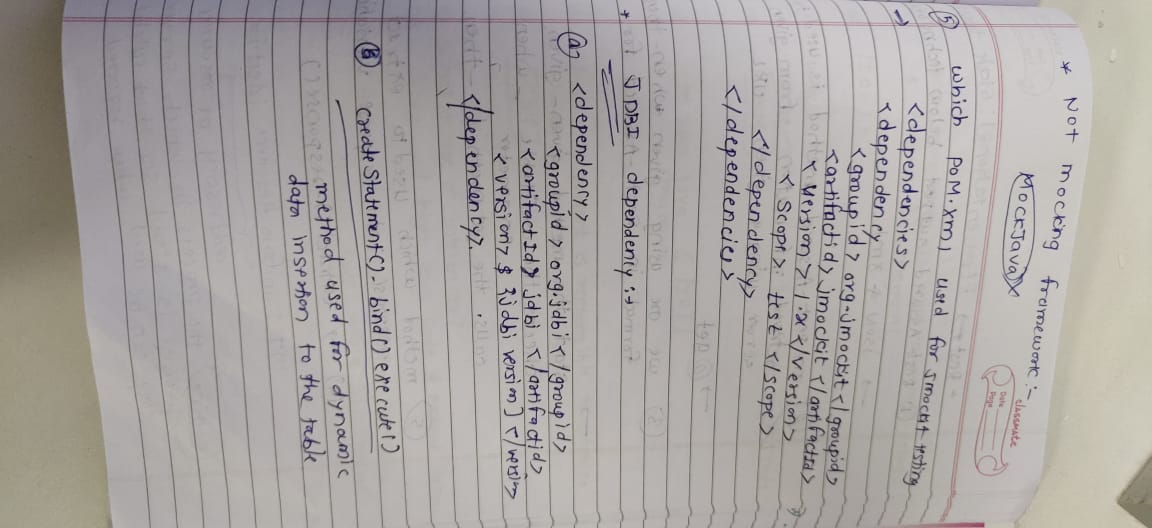 classmate
Date
Page
* Not mocking framework :-
MockJava
⑤ which POM.xml used for Jmockit testing
→ <dependencies>
<dependency
<groupid> org.jmockit </groupid>
<artifactid> jmockit </artifactid>
< Version > 1.x </version>
< Scope> test </scope>
</dependency>
</dependencies>
* JDBI dependency :→
ⓐ <dependency>
<groupId> org.jdbi </groupid>
<artifactId> jdbi </artifactid>
< version> $ {jdbi version} </version
</dependency>.
ⓑ. createStatement().bind() execute()
method used for dynamic
data insertion to the table